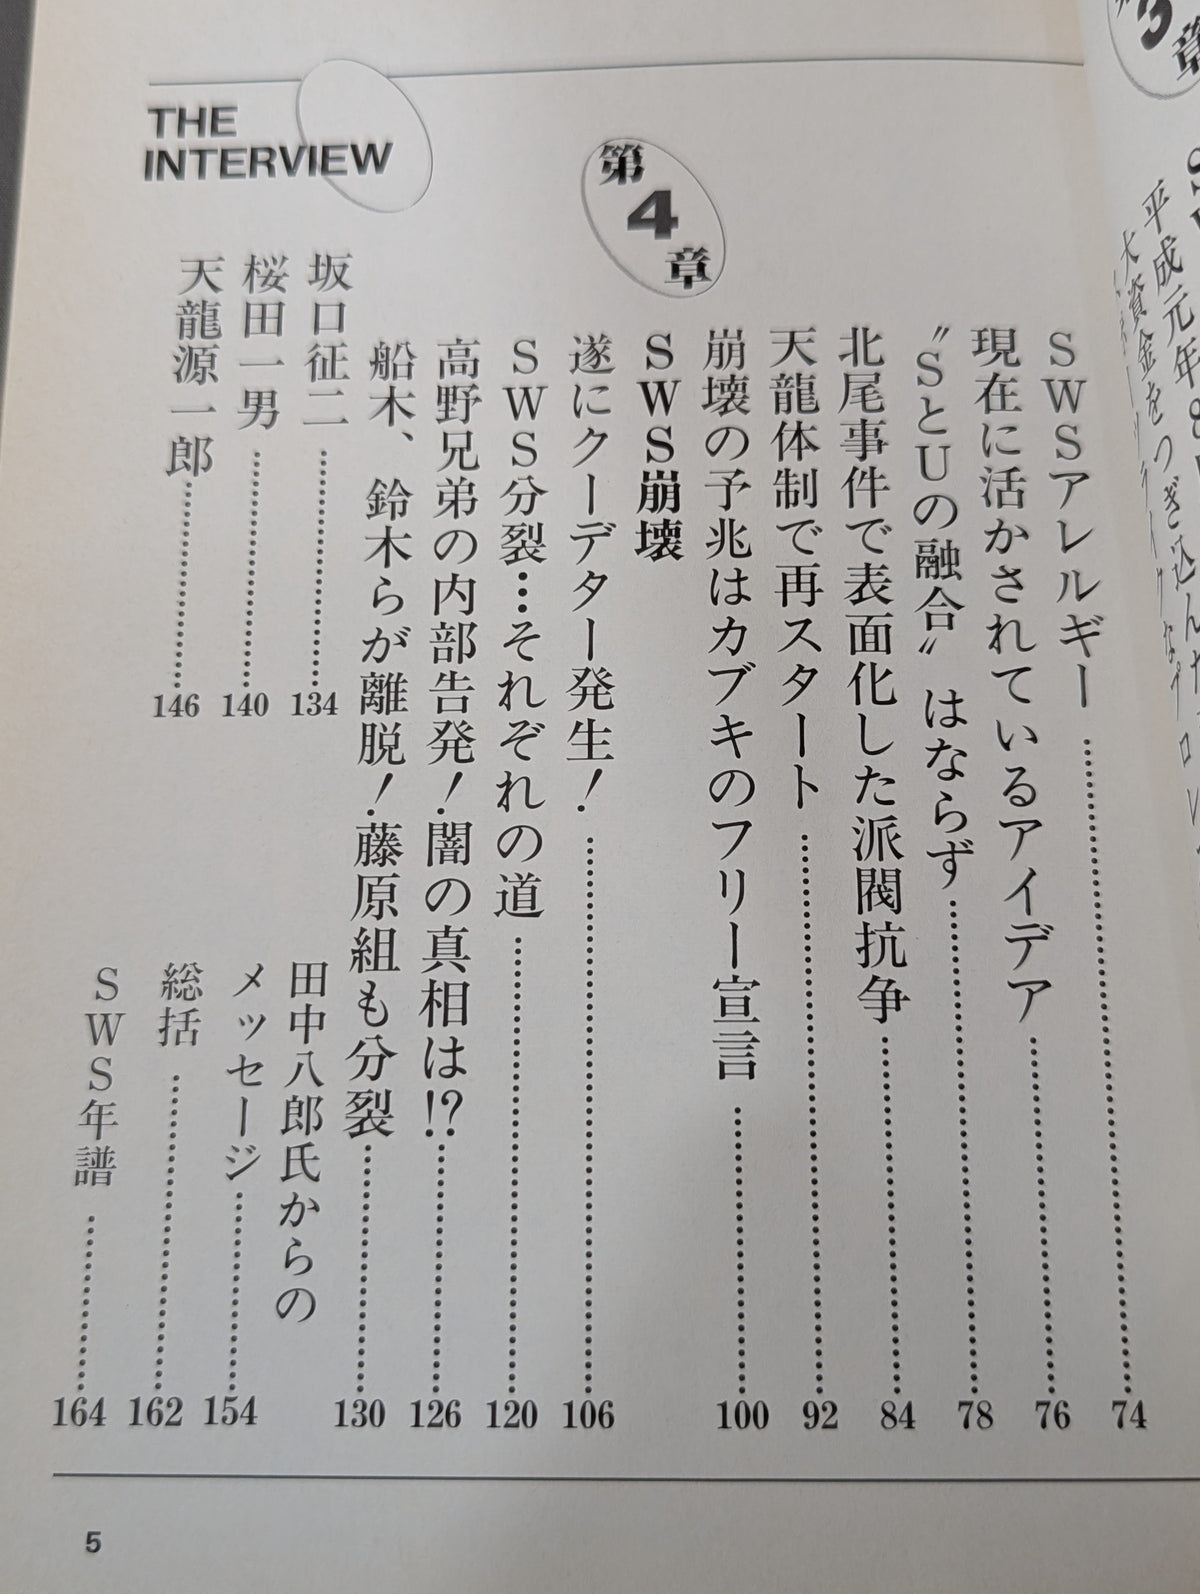 3
章
平成元年8
大資金をつぎ込んだ
SWSアレルギー……74
現在に活かされているアイデア……76
〝SとUの融合〟はならず……78
北尾事件で表面化した派閥抗争……84
天龍体制で再スタート……92
崩壊の予兆はカブキのフリー宣言……100
第4章
SWS崩壊
遂にクーデター発生!……106
SWS分裂…それぞれの道……120
高野兄弟の内部告発!闇の真相は!?……126
船木、鈴木らが離脱!藤原組も分裂……130
THE
INTERVIEW
坂口征二……134
桜田一男……140
天龍源一郎……146
田中八郎氏からの
メッセージ……154
総括……162
SWS年譜……164
5